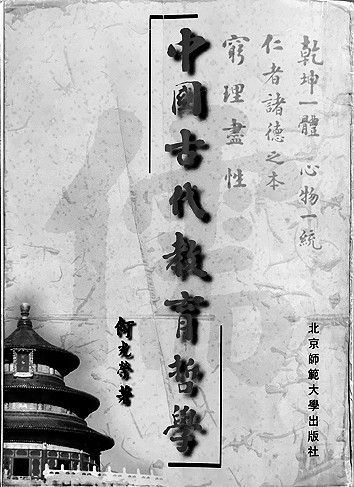 乾坤一體 心物一統
仁者諸德之本
窮理盡性
中國古代教育哲學
何光榮著
北京師範大學出版社